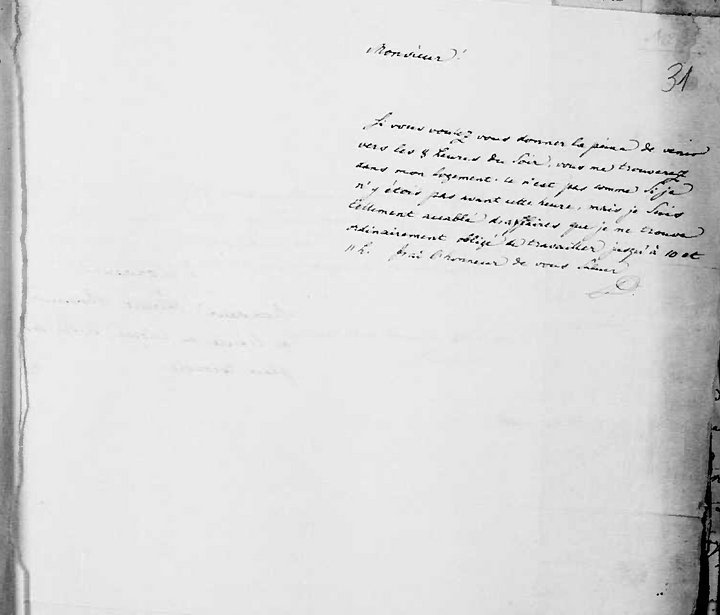 Monsieur!
31
Si vous voulez vous donner la peine de venir
vers les 8 heures du Soir, vous me trouverez
dans mon logement. Ce n'est pas comme si je
n'y étois pas avant cette heure, mais je suis
tellement accablé d'affaires que je me trouve
ordinairement obligé de travailler jusqu'à 10 et
11 h. J'ai l'honneur de vous saluer